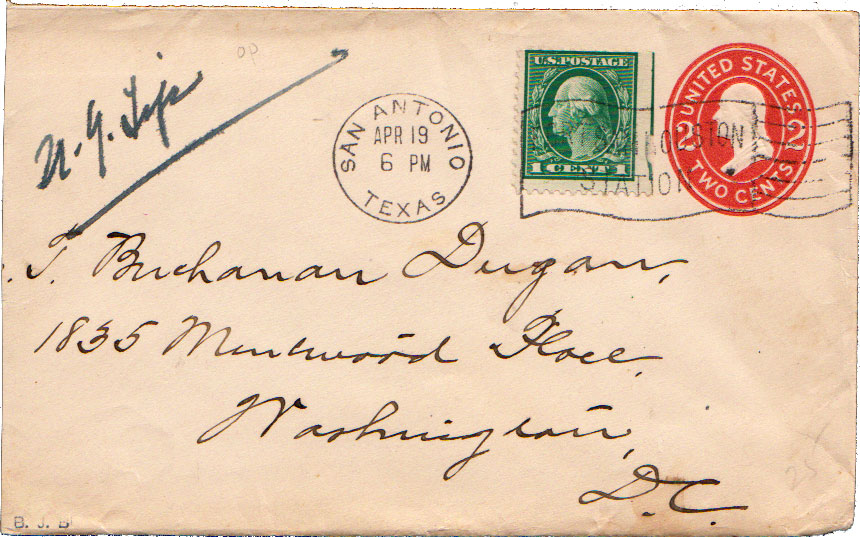 U.S. POSTAGE
1 CENT 1
UNITED STATES
2 2
TWO CENTS
SAN ANTONIO
APR 19
6 PM
TEXAS
STATION
T. Buchanan Dugan,
1835 Mintwood Place,
Washington,
D.C.
25
B. J. B